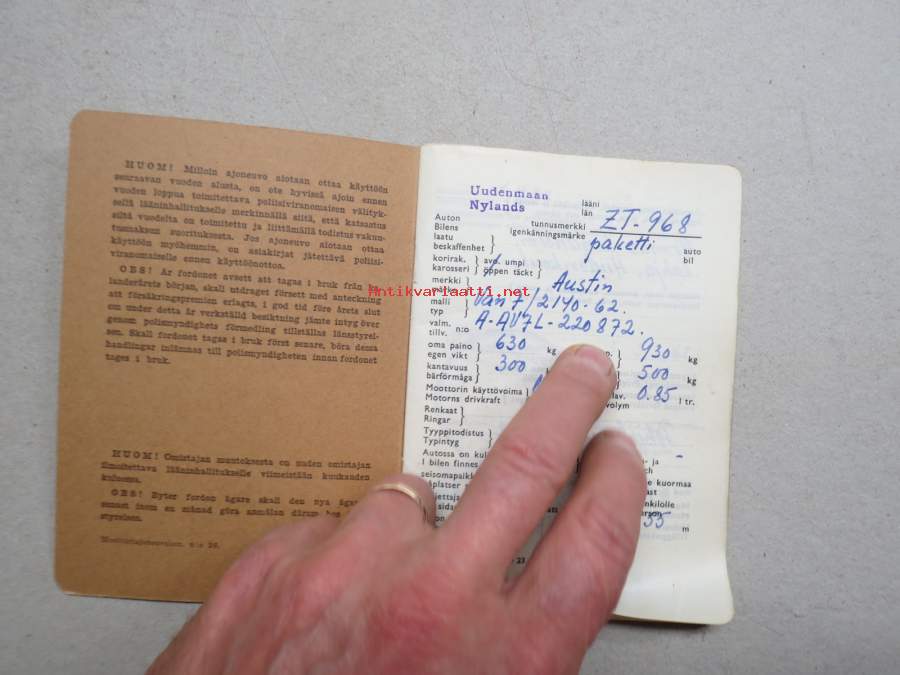 HUOM! Milloin ajoneuvo aiotaan ottaa käyttöön
seuraavan vuoden alusta, on ote hyvissä ajoin ennen
vuoden loppua toimitettava poliisiviranomaisen välityk-
sellä lääninhallitukselle merkinnällä siitä, että katsastus
siltä vuodelta on toimitettu ja liittämällä todistus vakuu-
tusmaksun suorituksesta. Jos ajoneuvo aiotaan ottaa
käyttöön myöhemmin, on asiakirjat jätettävä poliisi-
viranomaiselle ennen käyttöönottoa.
OBS! Är fordonet avsett att tagas i bruk från ka-
landerårets början, skall utdraget försett med anteckning
att försäkringspremien erlagts, i god tid före årets slut
om under detta år verkställd besiktning jämte intyg över
genom polismyndighets förmedling tillställas länsstyrel-
sen. Skall fordonet tagas i bruk först senare, böra dessa
handlingar inlämnas till polismyndigheten innan fordonet
tages i bruk.
HUOM! Omistajan muutoksesta on uuden omistajan
ilmoitettava lääninhallitukselle viimeistään kuukauden
kuluessa.
OBS! Byter fordon ägare skall den nya ägar
senast inom en månad göra anmälan därom hos
styrelsen.
Uudenmaan lääni
Nylands län
Auton
Bilens
tunnusmerkki
igenkänningsmärke
ZT-968
laatu
beskaffenhet
paketti
auto
bil
korirak.
karosseri
avo. umpi
öppen täckt
merkki
Austin
malli
typ
Van 7/2140-62.
valm. n:o
tillv.
A-AV7L-220872.
oma paino
egen vikt
630
kg
930
kg
kantavuus
bärförmåga
300
500
kg
Moottorin käyttövoima
Motorns drivkraft
lav.
volym
0.85
l tr.
Renkaat
Ringar
Tyyppitodistus
Typintyg
Autossa on
I bilen finnes
ja
och
seisomapaikk
åplatser
kuormaa
last
nkilölle
55
m
23
Antikvariaatti.net